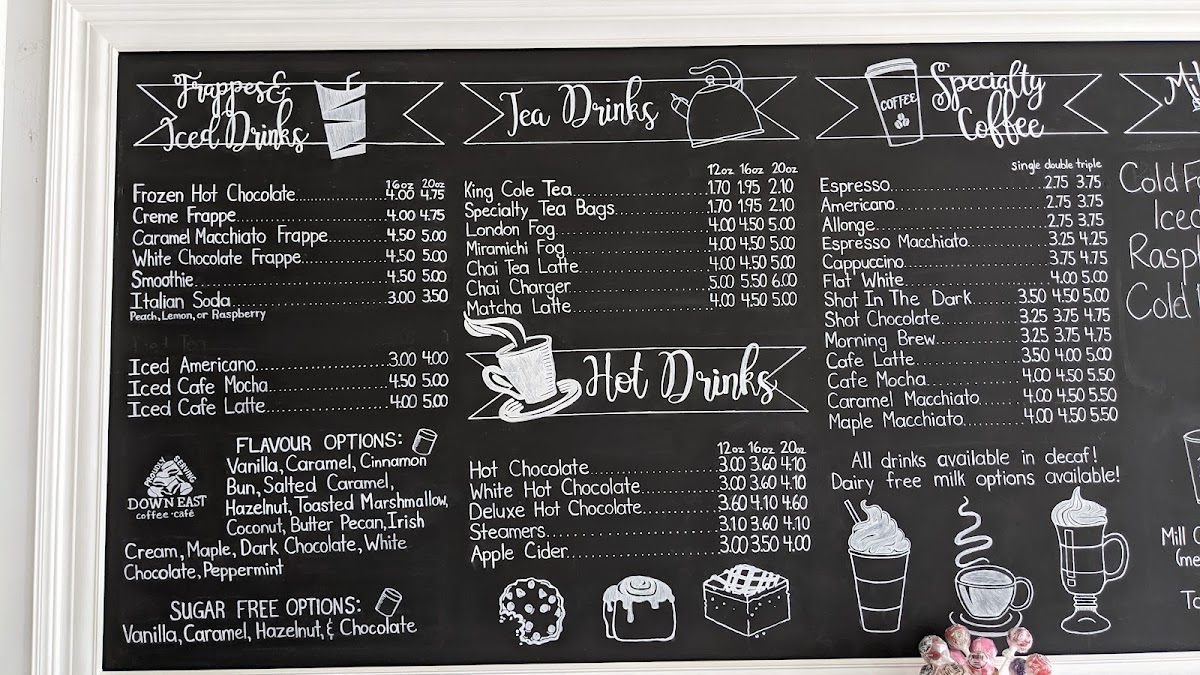 Frappes &
Iced Drinks
16oz 20oz
Frozen Hot Chocolate 4.00 4.75
Creme Frappe 4.00 4.75
Caramel Macchiato Frappe 4.50 5.00
White Chocolate Frappe 4.50 5.00
Smoothie 4.50 5.00
Italian Soda 3.00 3.50
Peach, Lemon, or Raspberry
Iced Americano 3.00 4.00
Iced Cafe Mocha 4.50 5.00
Iced Cafe Latte 4.00 5.00
FLAVOUR OPTIONS:
Vanilla, Caramel, Cinnamon
Bun, Salted Caramel,
Hazelnut, Toasted Marshmallow,
Coconut, Butter Pecan, Irish
Cream, Maple, Dark Chocolate, White
Chocolate, Peppermint
PROUDLY SERVING
DOWN EAST
coffee · café
SUGAR FREE OPTIONS:
Vanilla, Caramel, Hazelnut, & Chocolate
Tea Drinks
12oz 16oz 20oz
King Cole Tea 1.70 1.95 2.10
Specialty Tea Bags 1.70 1.95 2.10
London Fog 4.00 4.50 5.00
Miramichi Fog 4.00 4.50 5.00
Chai Tea Latte 4.00 4.50 5.00
Chai Charger 5.00 5.50 6.00
Matcha Latte 4.00 4.50 5.00
Hot Drinks
12oz 16oz 20oz
Hot Chocolate 3.00 3.60 4.10
White Hot Chocolate 3.00 3.60 4.10
Deluxe Hot Chocolate 3.60 4.10 4.60
Steamers 3.10 3.60 4.10
Apple Cider 3.00 3.50 4.00
COFFEE
Specialty
Coffee
single double triple
Espresso 2.75 3.75
Americano 2.75 3.75
Allonge 2.75 3.75
Espresso Macchiato 3.25 4.25
Cappuccino 3.75 4.75
Flat White 4.00 5.00
Shot In The Dark 3.50 4.50 5.00
Shot Chocolate 3.25 3.75 4.75
Morning Brew 3.25 3.75 4.75
Cafe Latte 3.50 4.00 5.00
Cafe Mocha 4.00 4.50 5.50
Caramel Macchiato 4.00 4.50 5.50
Maple Macchiato 4.00 4.50 5.50
All drinks available in decaf!
Dairy free milk options available!
Cold
Iced
Cold
Mill